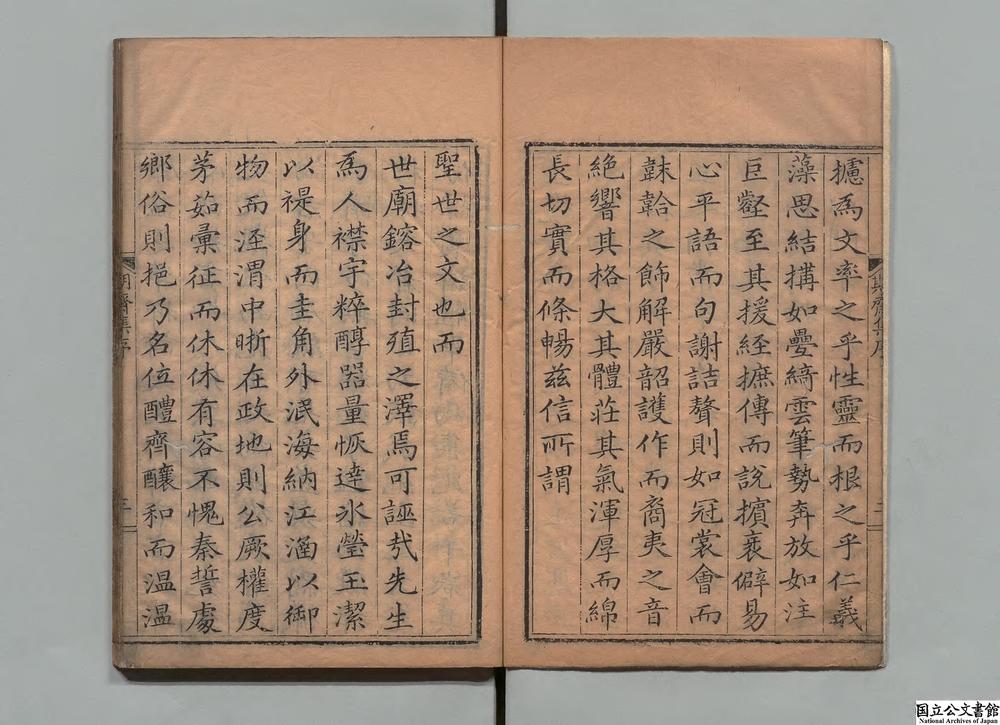 攄為文率之乎性靈而根之乎仁義
藻思結搆如疊綺雲筆勢奔放如注
巨壑至其援經摭傳而說擯衺僻易
心平語而句謝詰聱則如冠裳會而
韎韐之飾解嚴韶頀作而裔夷之音
絶響其格大其體莊其氣渾厚而綿
長切實而條暢茲信所謂
聖世之文也而
世廟鎔冶封殖之澤焉可誣㢤先生
為人襟宇粹醇器量恢達氷瑩玉潔
以禔身而圭角外泯海納江涵以御
物而涇渭中晰在政地則公厥權度
茅茹彙征而休休有容不愧秦誓處
鄉俗則挹乃名位醴齊釀和而温温
集序
二
国立公文書館
National Archives of Japan